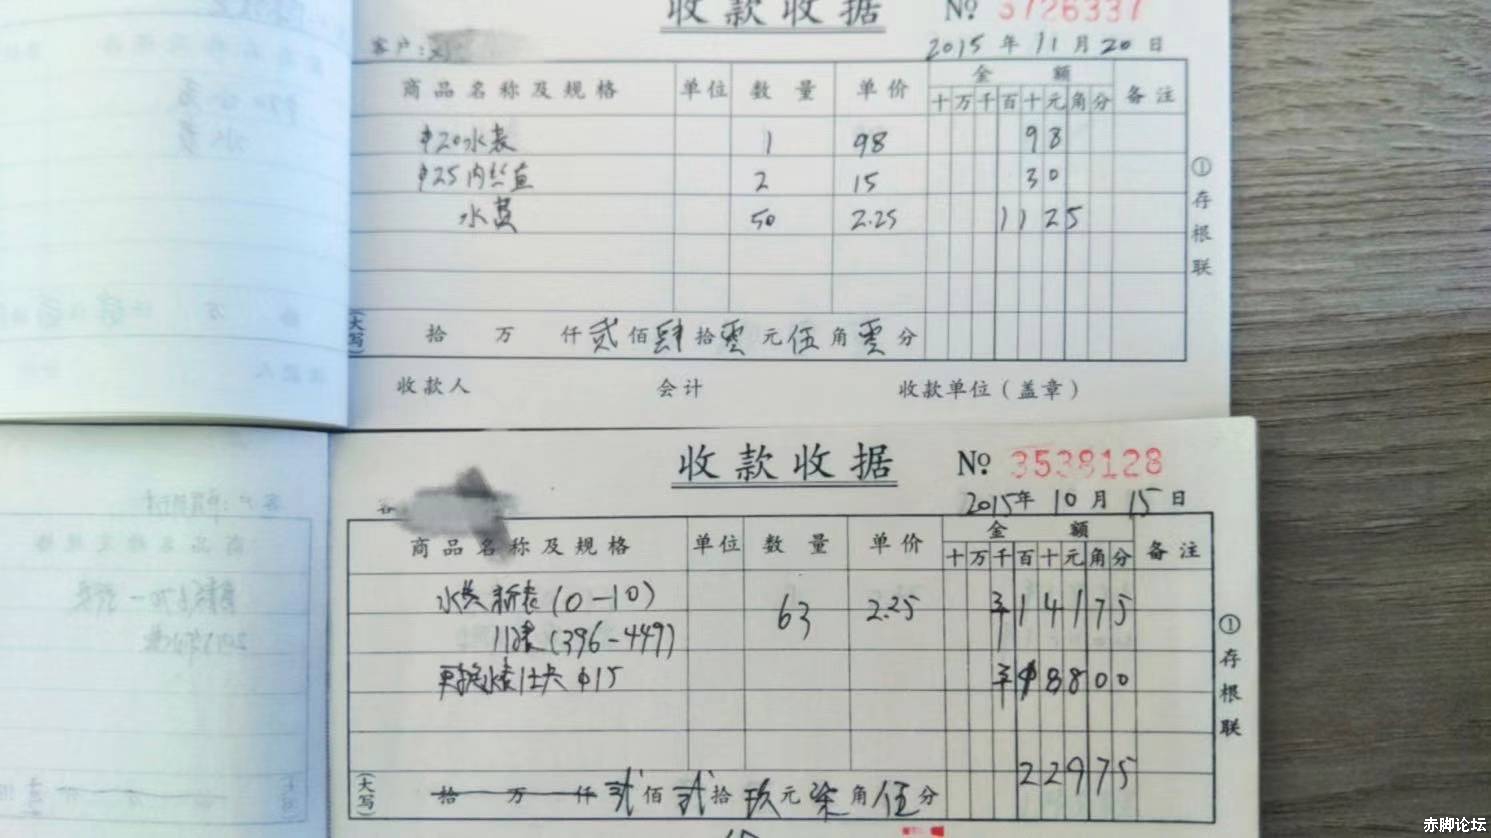 收款收据 № 3726337
客户:刘
2015 年 11 月 20 日
商品名称及规格 单位 数量 单价 金额 备注
十 万 千 百 十 元 角 分
φ20水表 1 98 98
φ25内丝直 2 15 30
水费 50 2.25 1125
(大写) 拾 万 仟 贰 佰 肆 拾 零 元 伍 角 零 分
①存根联
收款人 会计 收款单位(盖章)
收款收据 № 3538128
客
2015年 10 月 15 日
商品名称及规格 单位 数量 单价 金额 备注
十 万 千 百 十 元 角 分
水费 新表(0-10) 63 2.25 14175
旧表(396-449)
更换水表 φ15 8800
22975
(大写) 拾 万 仟 贰 佰 贰 拾 玖 元 柒 角 伍 分
①存根联
赤脚论坛